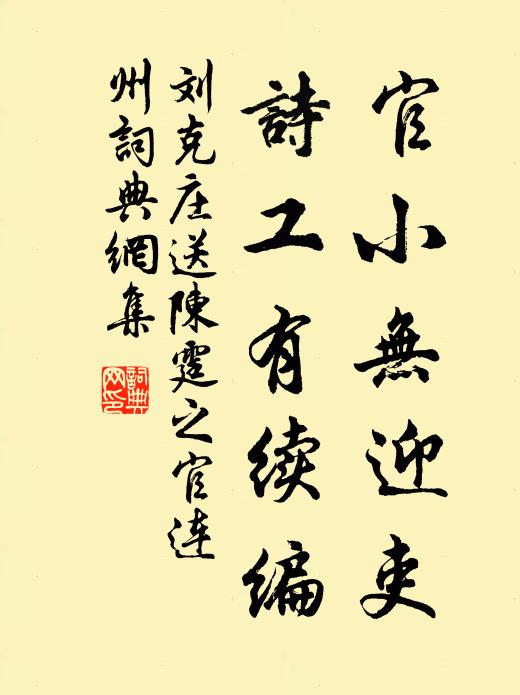 官小無迎吏
詩工有续編
刘克庄送陳霆之官連
州詞典網集
詞典
网印